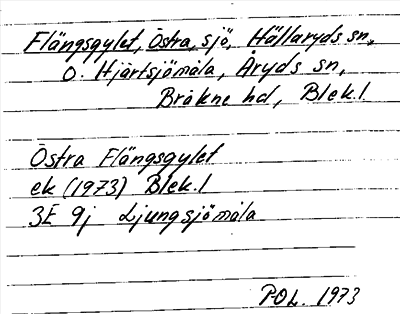 Flängsgylet, Östra, sjö, Hällaryds sn,
O. Hjärtsjömåla, Åryds sn,
Bräkne hd, Blek.l.
Östra Flängsgylet
ek (1973) Blek.l
3E 9j Ljungsjömåla
POL. 1973